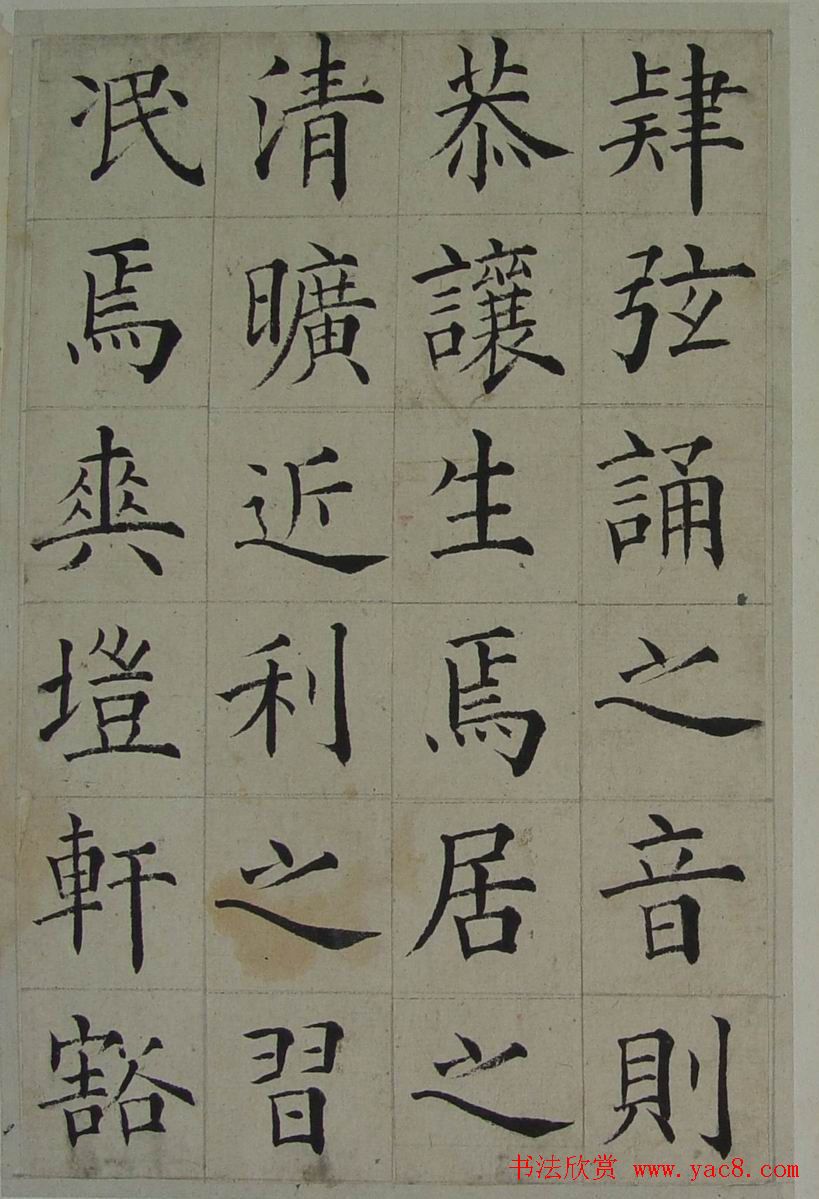 肄弦誦之音則
恭讓生焉居之
清曠近利之習
泯焉爽塏軒豁
书法欣赏 www.yac8.com